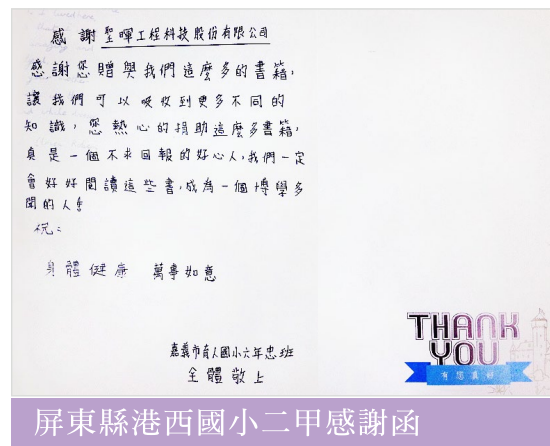 感謝聖暉工程科技股份有限公司
感謝您贈與我們這麼多的書籍,
讓我們可以吸收到更多不同的
知識,您熱心的捐助這麼多書籍,
真是一個不求回報的好心人,我們一定
會好好閱讀這些書,成為一個博學多
聞的人!
祝:
身體健康 萬事如意
嘉義市育人國小六年忠班
全體敬上
THANK
YOU
有您真好
屏東縣港西國小二甲感謝函